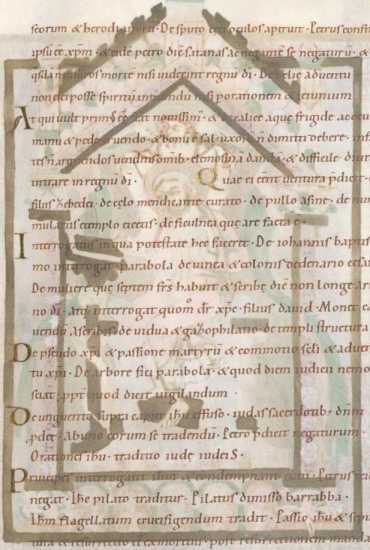 scorum & herodianorum · De sputo cecu oculos aperuit · Petrus confit
ipsū eē xp̄m · & idē petro dīc satanas ac negante se negaturū · &
q
mort nisi uiderint regnū dī · De helie aduentu
non eicposse spiritū inmundū nisi p orationem & ieiunium
At qui uult prim eē erit nouissim · de calice aque frigide · ac
manu & pede · & oculo · & boni e sal · uxorē ñ dimitti debere · inf
tes ñ arguendos · uendits omib; elemosina danda · & difficile diuit
intrare in regnū dī · Quae ei eent uentura p̄dicit ·
filius zebedei · de celo mendicante curato · de pullo asine · de
mulatis templo eiectis · de ficulnea que arefacta ē ·
Interrogatus in qua potestate hec faceret · De iohannis baptis
mo interrogat · parabola de uinea & colonis · de denario cesa
De muliere que septem frs̄ habuit & scribe dīc non longe a r
no dī · Atq; interrogat quom̄ dr̄ xp̄c · filius dauid · Monet ca
uendū a scribis · de uidua & gazophilatio · de templi structura
De pseudo xpī & passione martyrū & commotio scli & aduen
tu xpī · De arbore fici parabola · & quod diem iudicii nemo
sciat · ppt quod dicit uigilandum ·
De unguento supra caput ihu effuso · iudas sacerdotib; dn̄m
p̄det · ab uno eorum se tradendū · Petro p̄dicit negaturum ·
Orationes ihu · traditio iude iudeis ·
Principes interrogant ihm & condemnant eum · Petrus
negat · ihc pilato traditur · Pilatus dimisso barrabba ·
ihm flagellatum crucifigendum tradit · Passio ihu & se
resurrectionem